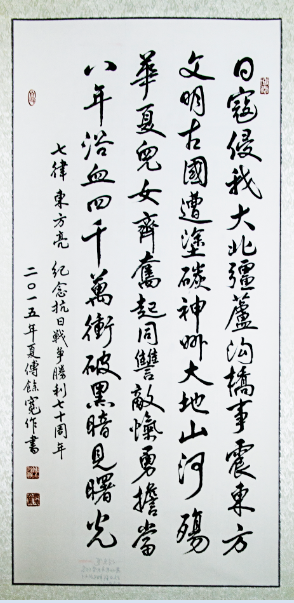 日寇侵我大北疆蘆沟橋事震東方
文明古國遭塗碳神州大地山河殤
華夏兒女齊奮起同讐敵愾勇擔當
八年浴血四千萬衝破黑暗見曙光
七律 東方亮 紀念抗日戰爭勝利七十周年
二〇一五年夏傅餘寬作書